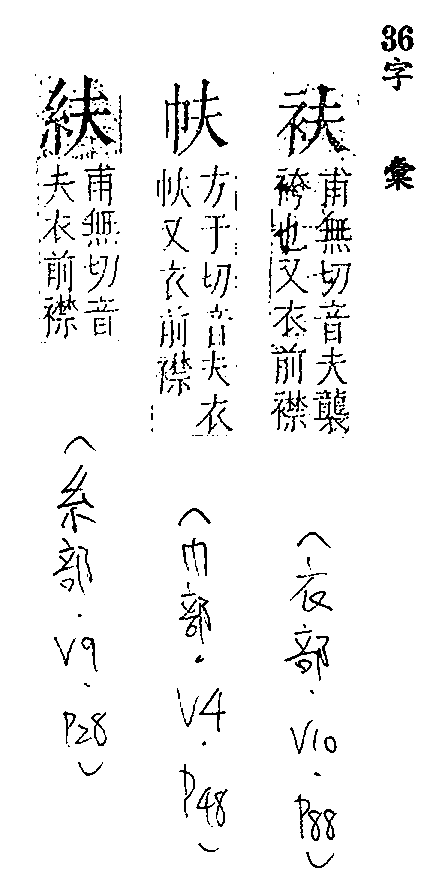 36字彙
衭
甫無切音夫襲
袴也又衣前襟
（衣部．V10．P88）
方于切音夫衣
又衣前襟
（巾部．V4．P48）
甫無切音
夫衣前襟
（糸部．V9．P28）